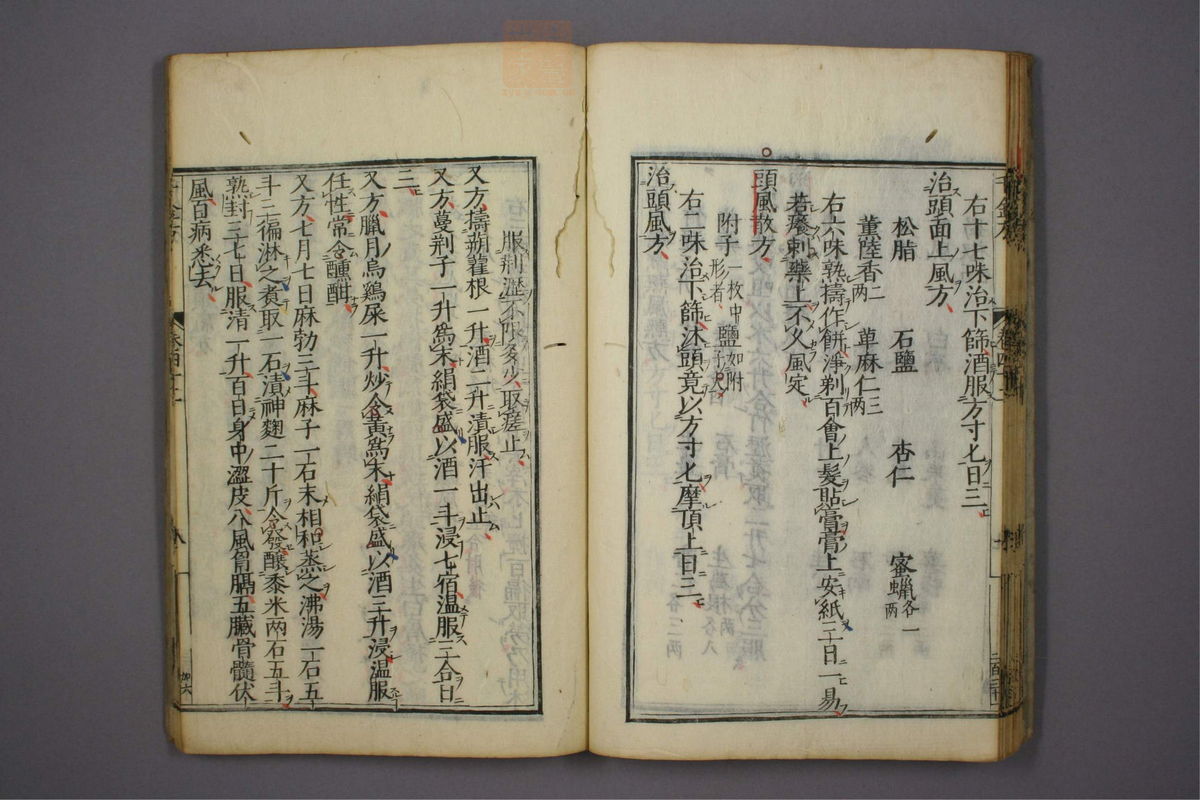 右十七味治下篩酒服方寸匕日三
治頭面上風方
松脂 石鹽 杏仁 蜜蠟各一兩
薰陸香二兩 萆麻仁三兩
右六味熟擣作餅淨剃百會上髮貼膏膏上安紙三日一易
若癢刺藥上不久風定
頭風散方
附子一枚中形者 鹽如附子大
右二味治下篩沐頭竟以方寸匕摩頂上日三
治頭風方
服荆瀝不限多少取瘥止
又方擣蒴藋根一升酒二升漬服汗出止
又方蔓荆子一升爲末絹袋盛以酒一斗浸七宿溫服三合日
三
又方臘月烏鷄屎一升炒令黃爲末絹袋盛以酒三升浸溫服
任性常令醺酣
又方七月七日麻勃三斗麻子一石末相和蒸之沸湯一石五
斗三徧淋之煮取一石漬神麴二十斤令發釀黍米兩石五斗
熟封三七日服清一升百日身中澀皮八風胷膈五臟骨髓伏
風百病悉去